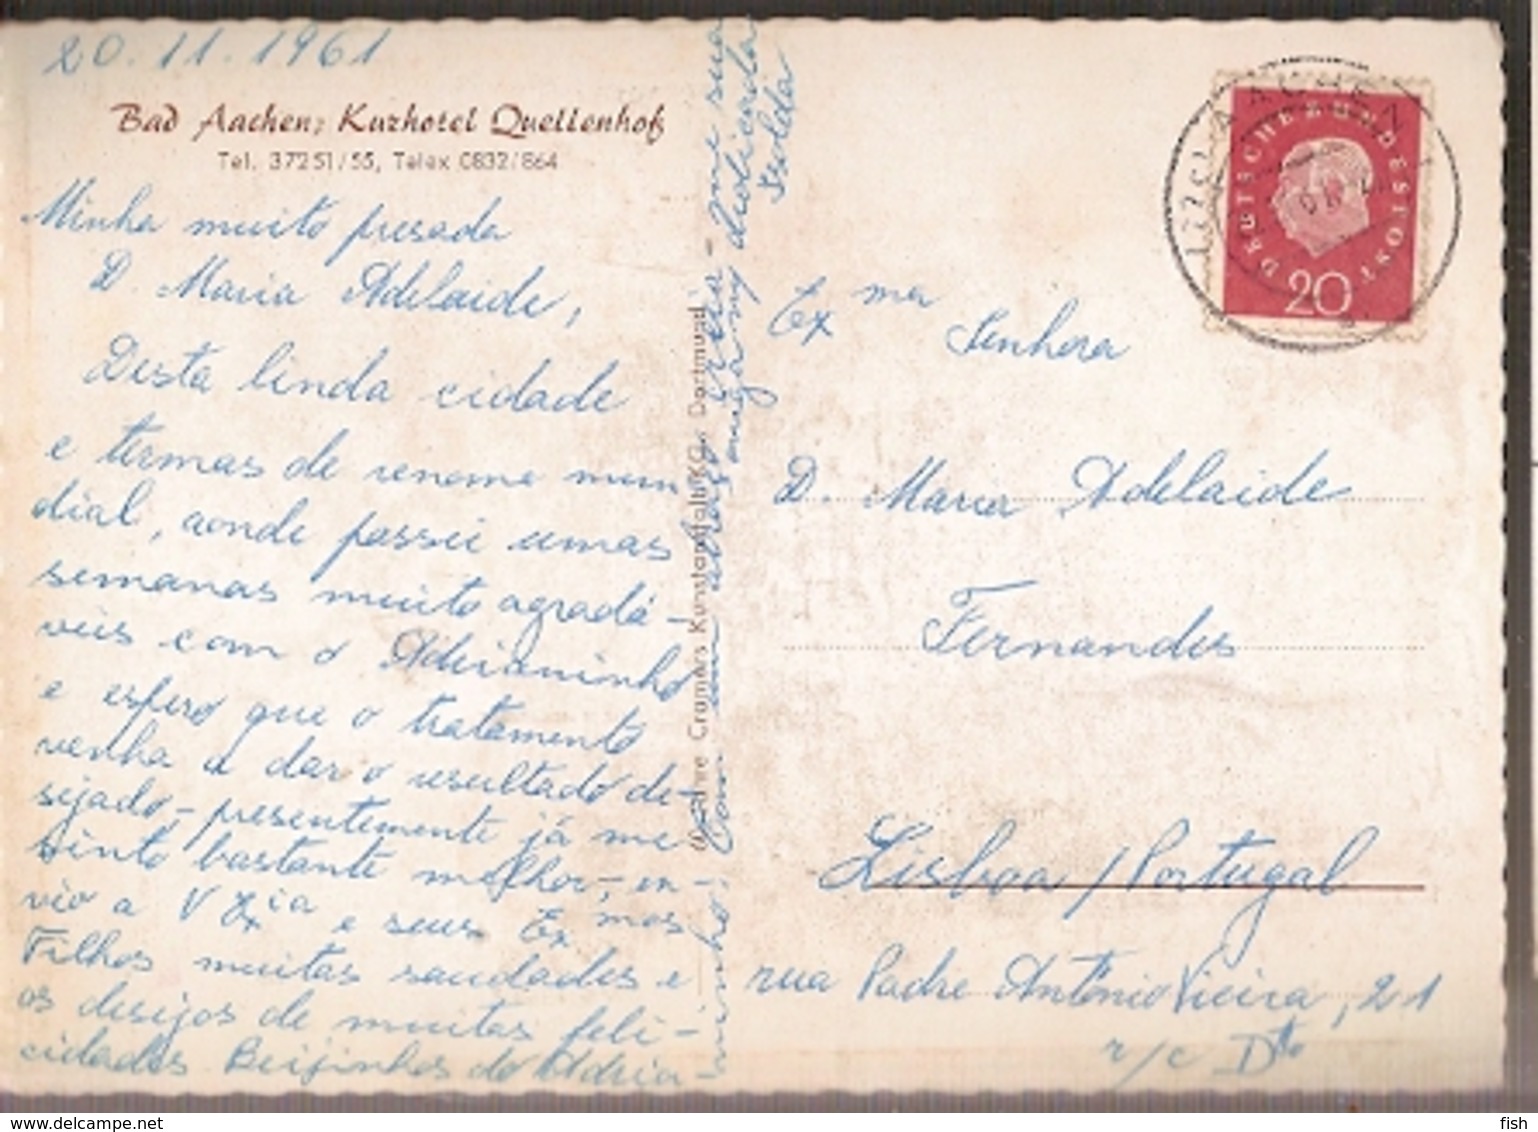 20.11.1961
Bad Aachen; Kurhotel Quellenhof
Tel. 37251/55, Telex 0832/864
Minha muito presada
D. Maria Adelaide,
Desta linda cidade
e termas de renome mun
dial, aonde passei umas
semanas muito agradá-
veis com o Adrianinho
e espero que o tratamento
venha a dar o resultado de-
sejado,- presentemente já me
sinto bastante melhor,- en-
vio a V Exᶜⁱᵃ e seus Exmos
Filhos muitas saudades e
os desejos de muitas feli-
cidades. Beijinhos do Adria-
ninho. Com um abraço creia-me sua
amiga mᵗᵒ dedicada
Isolda
Cramers Kunstanstalt KG, Dortmund
DEUTSCHE BUNDESPOST
20
AACHEN
Exma
Senhora
D. Maria Adelaide
Fernandes
Lisboa / Portugal
rua Padre António Vieira, 21
r/c Dto
fish